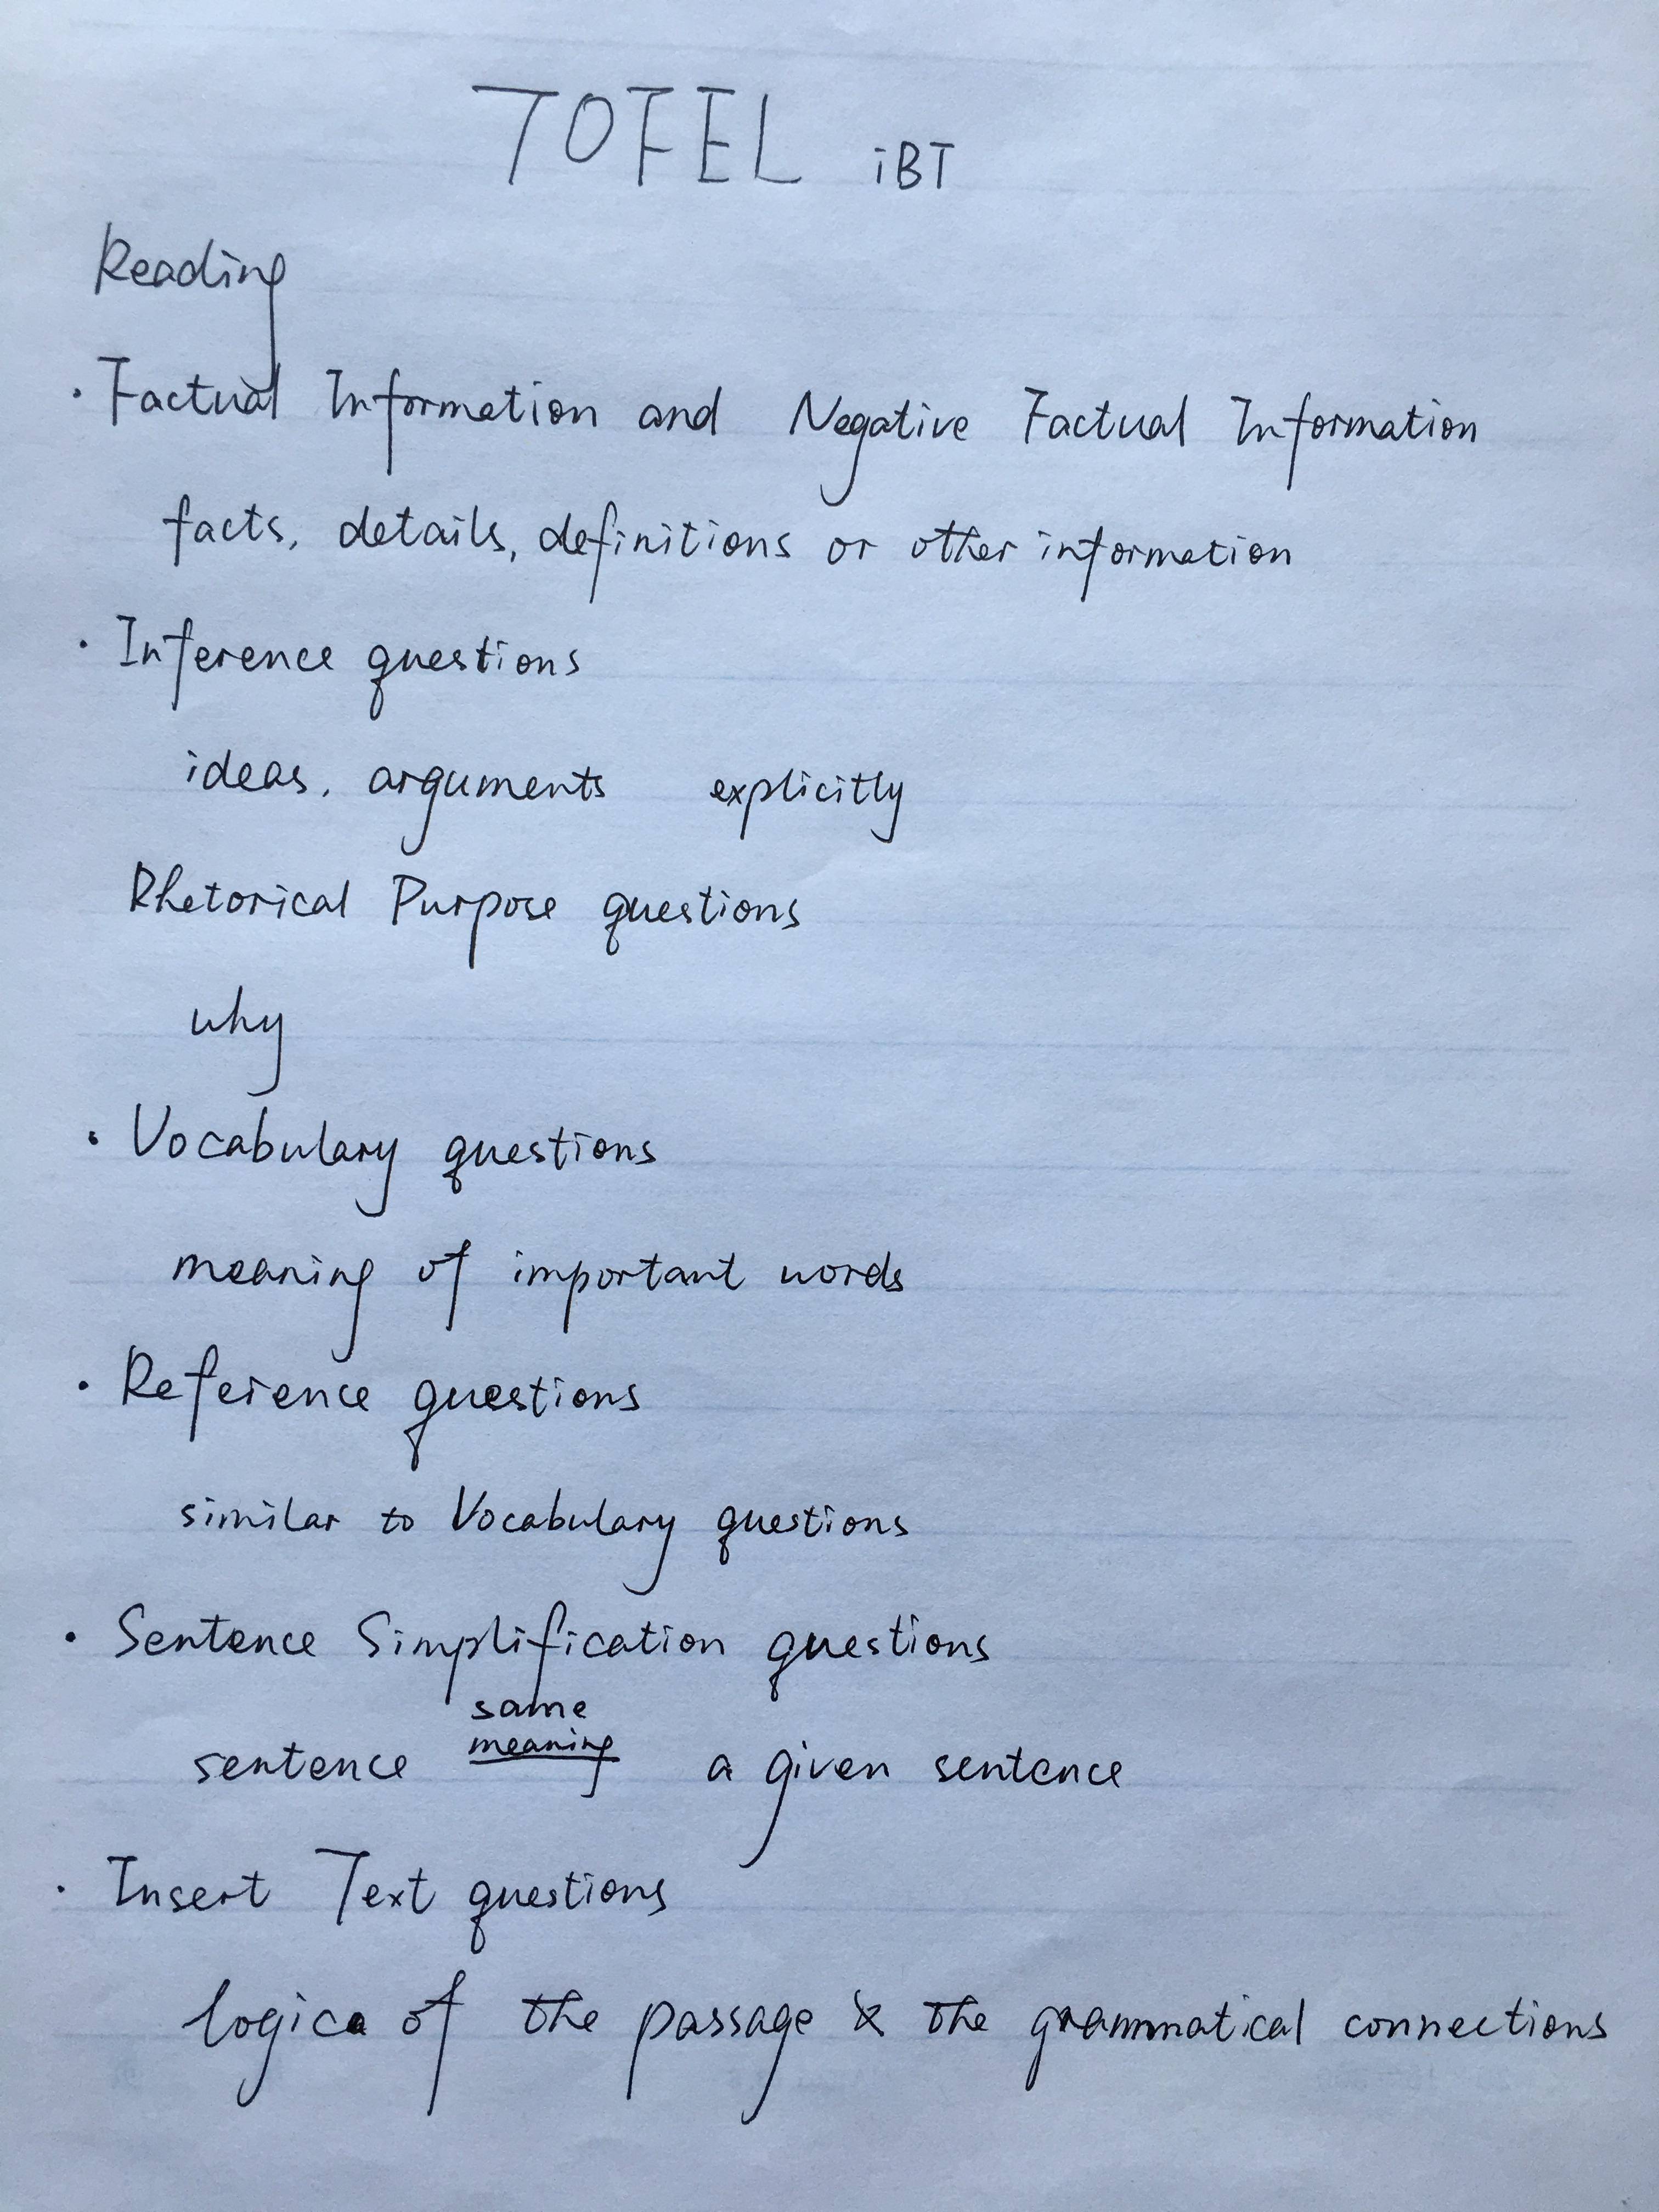 TOFEL iBT
Reading
· Factual Information and Negative Factual Information
facts, details, definitions or other information
· Inference questions
ideas, arguments explicitly
Rhetorical Purpose questions
why
· Vocabulary questions
meaning of important words
· Reference questions
similar to Vocabulary questions
· Sentence Simplification questions
same
sentence meaning a given sentence
· Insert Text questions
logic of the passage & the grammatical connections